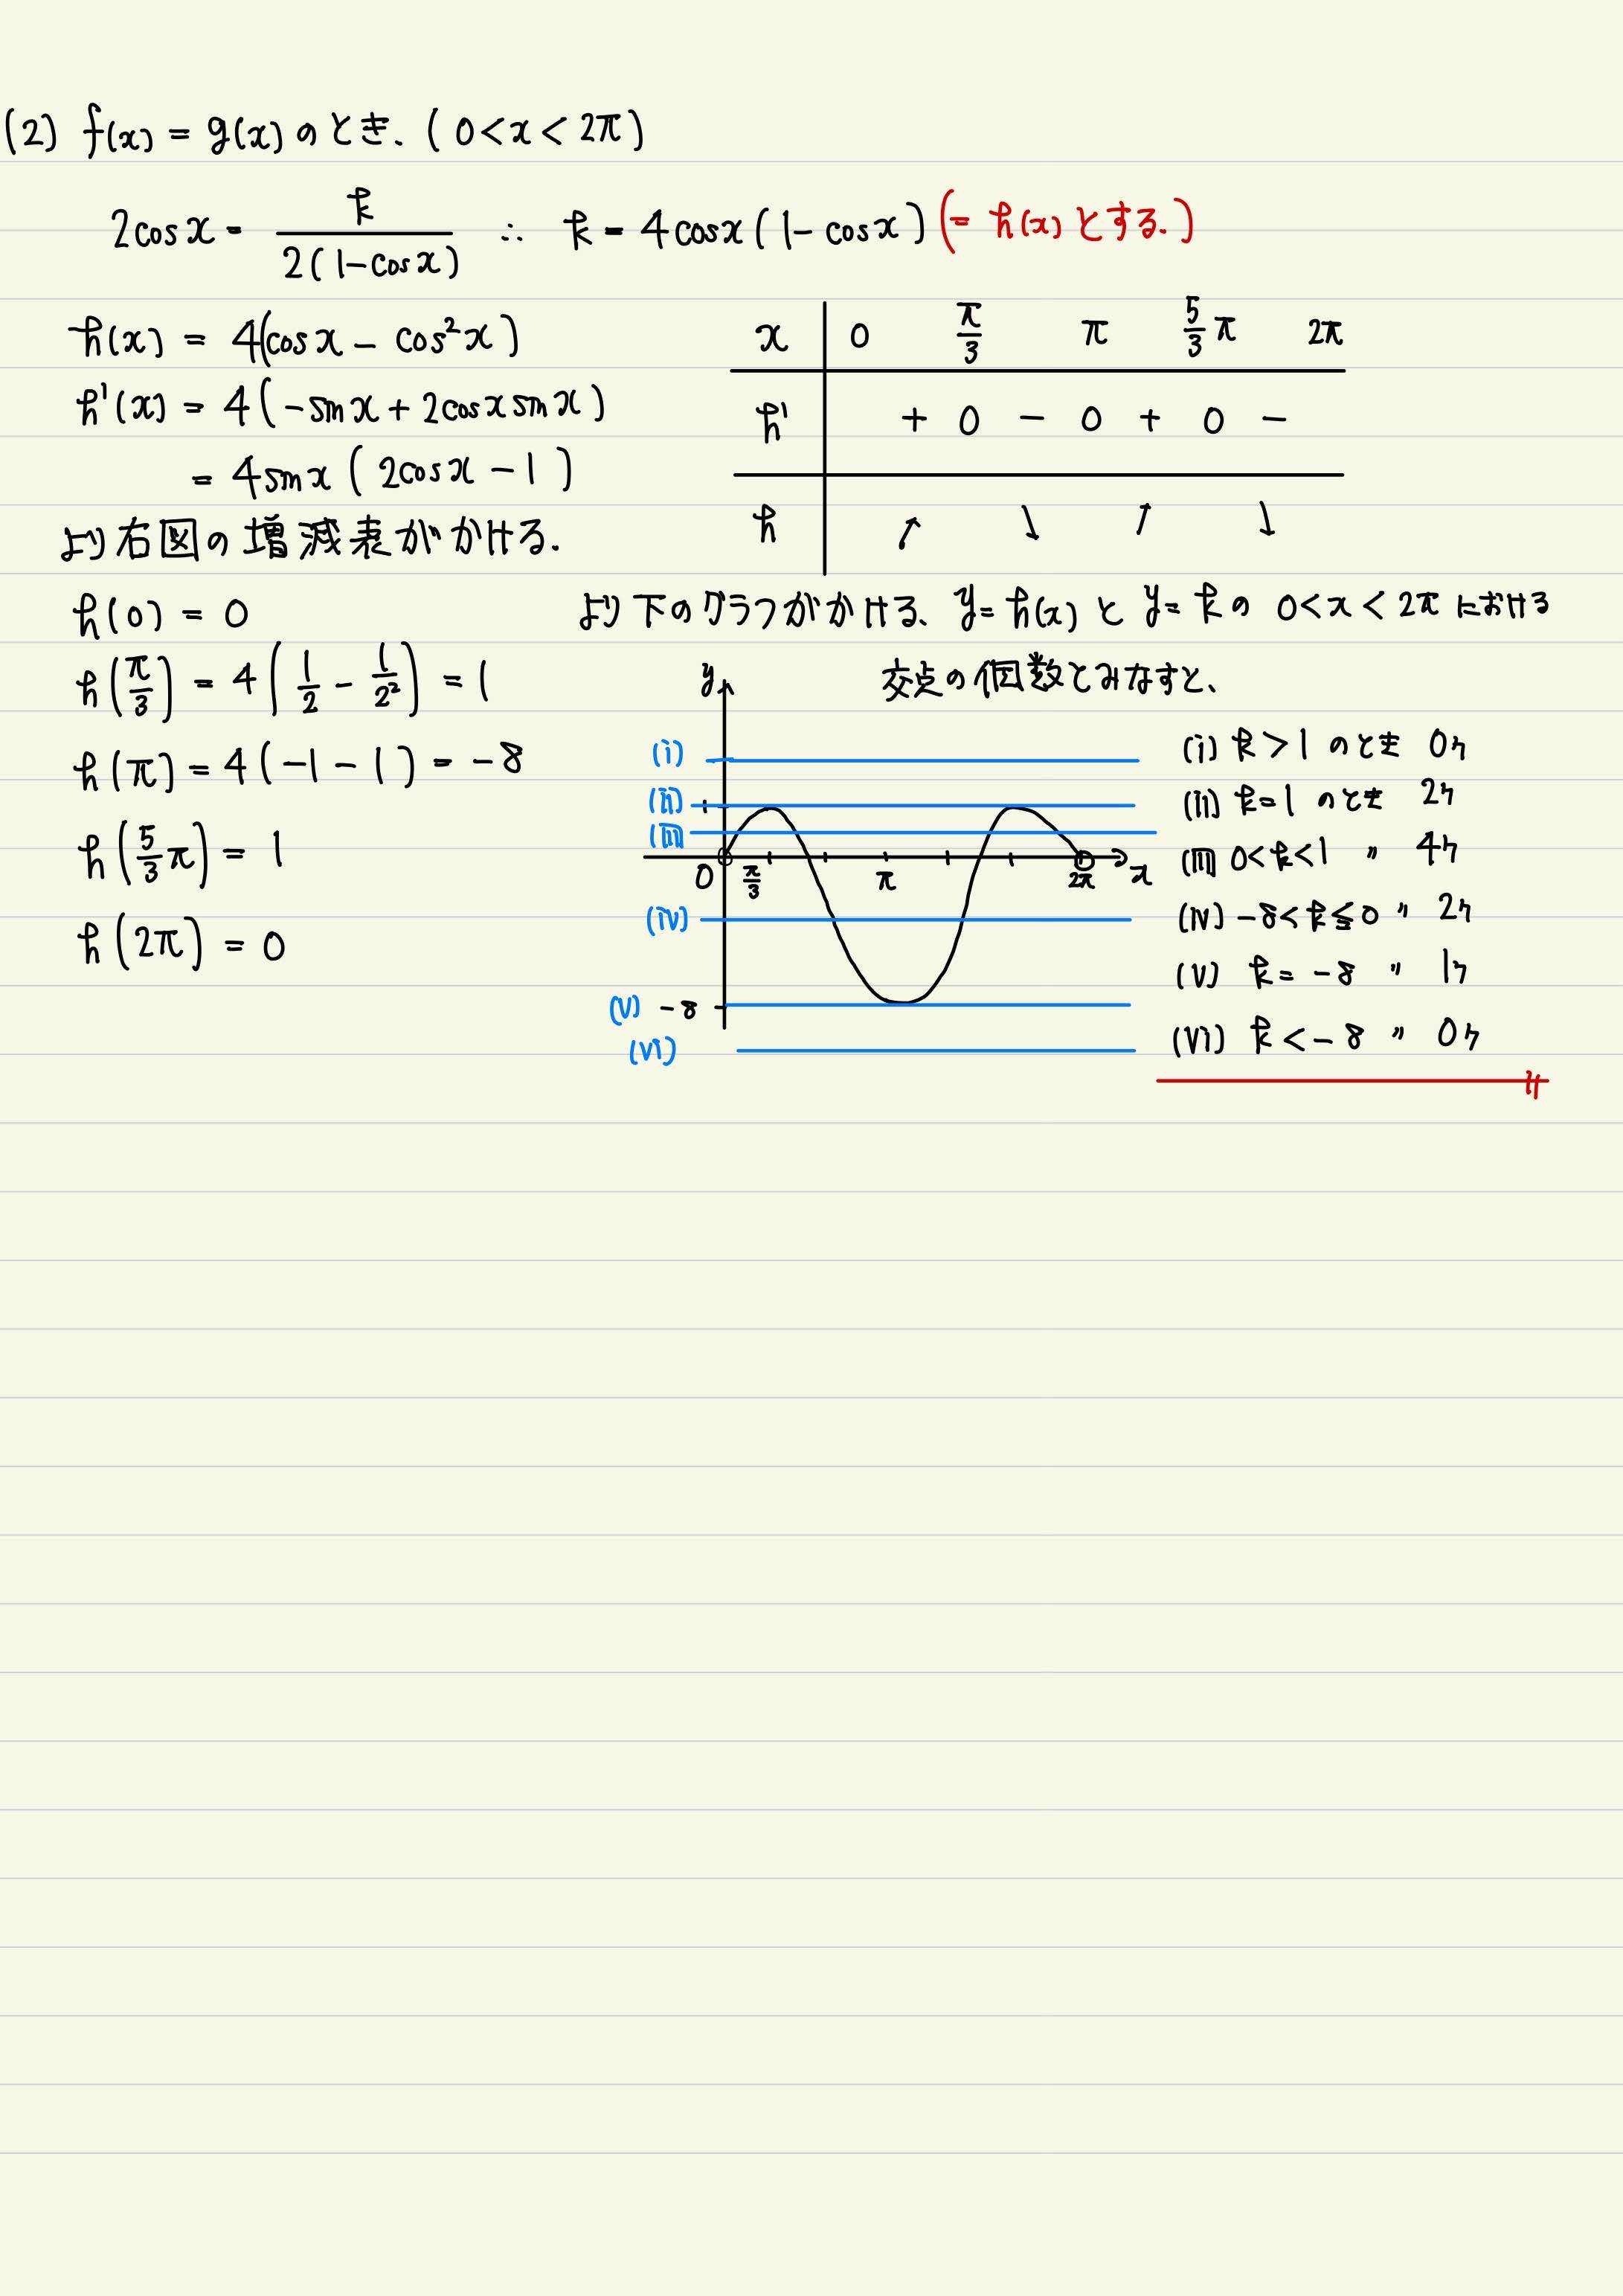 (2) f(x) = g(x) のとき. (0<x<2π)
2cosx = k/2(1-cosx) ∴ k = 4cosx(1-cosx) (= h(x) とする.)
h(x) = 4(cosx - cos²x)
h'(x) = 4(-sinx + 2cosx sinx)
= 4sinx (2cosx - 1)
より右図の増減表がかける.
x 0 π/3 π 5/3π 2π
h' + 0 - 0 + 0 -
h ↗ ↘ ↗ ↘
h(0) = 0
h(π/3) = 4(1/2 - 1/2²) = 1
h(π) = 4(-1-1) = -8
h(5/3π) = 1
h(2π) = 0
より下のグラフがかける、y=h(x) と y=k の 0<x<2π における
交点の個数とみなすと、
y
(i)
(ii) 1
(iii)
0 π/3 π 2π x
(iv)
(v) -8
(vi)
(i) k>1 のとき 0ケ
(ii) k=1 のとき 2ケ
(iii) 0<k<1 〃 4ケ
(iv) -8<k≦0 〃 2ケ
(v) k=-8 〃 1ケ
(vi) k<-8 〃 0ケ